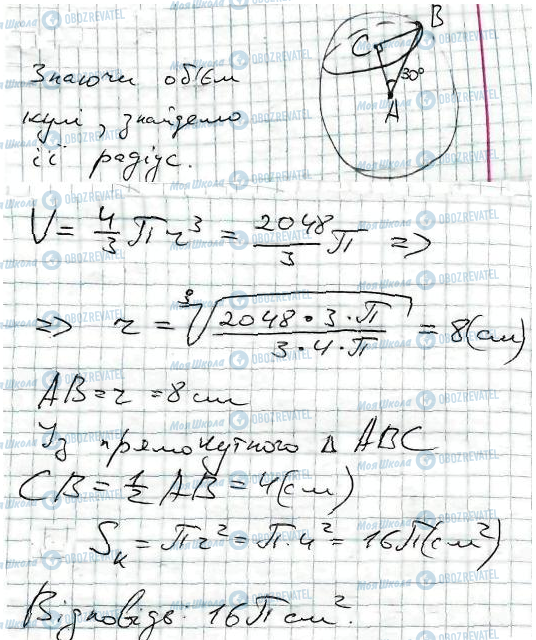 Знаючи об'єм
кулі, знайдемо
її радіус.
B
C
30°
A
V = 4/3 Πr³ = 2048/3 Π =>
=> r = ³√(2048·3·Π / 3·4·Π) = 8(см)
AB = r = 8 см
Із прямокутного Δ ABC
CB = 1/2 AB = 4(см)
Sк = Πr² = Π·4² = 16Π(см²)
Відповідь: 16Π см².
Моя Школа OBOZREVATEL